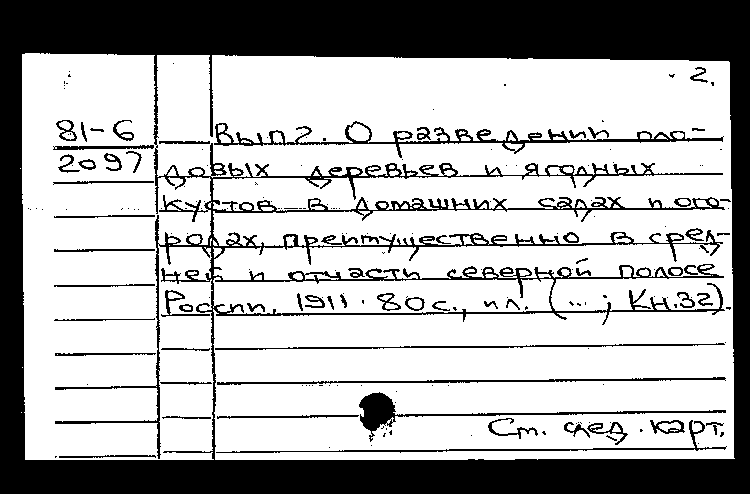 2.
81-6
2097
Вып 2. О разведении пло-
довых деревьев и ягодных
кустов в домашних садах и ого-
родах, преимущественно в сред-
ней и отчасти северной полосе
России. 1911. 80 с., ил. (...; Кн. 32).
См. след. карт.